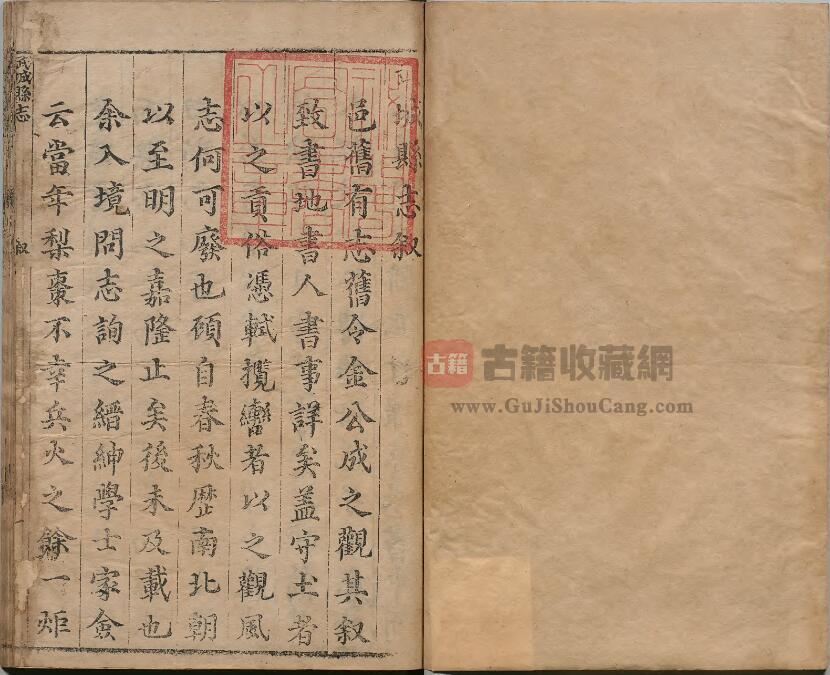 城縣志叙
邑舊有志舊令金公成之觀其叙
致書地書人書事詳矣盖守土者
以之貢俗憑軾攬轡者以之觀風
志何可廢也頋自春秋歷南北朝
以至明之嘉隆止矣後未及載也
余入境問志詢之縉紳學士家僉
云當年梨棗不幸兵火之餘一炬
武城縣志
叙
古籍
古籍收藏網
www.GuJiShouCang.com